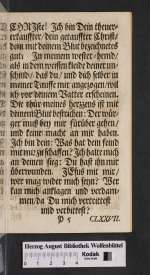 JESU! Ich bin Dein theuer-
erkauffter/ dein getauffter Christ/
dein mit deinem Blut bezeichnetes
gut: In meinem wester-hemd/
als in dem weissen kleide deiner un-
schuld/ hast du/ und dich selber in
meiner Tauffe mir angezogen/ vor
deinem Vatter erscheinen.
Die thür meines hertzens ist mit
deinem Blut bestrichen: Der würg-
er muß bey mir fürüber gehen/
und keine macht an mir haben.
Ich bin dein: Was hat dein feind
mit mir zu schaffen? Ich halte mich
an deinen sieg: Du hast ihn mir
überwunden. JEsus mit mir/
wer mag wider mich seyn? Wer
kan mich anklagen und verdam-
men/ da Du mich vertrittest
und verbittest?
P 5 CLXXVII.
Herzog August Bibliothek Wolfenbüttel
Kodak